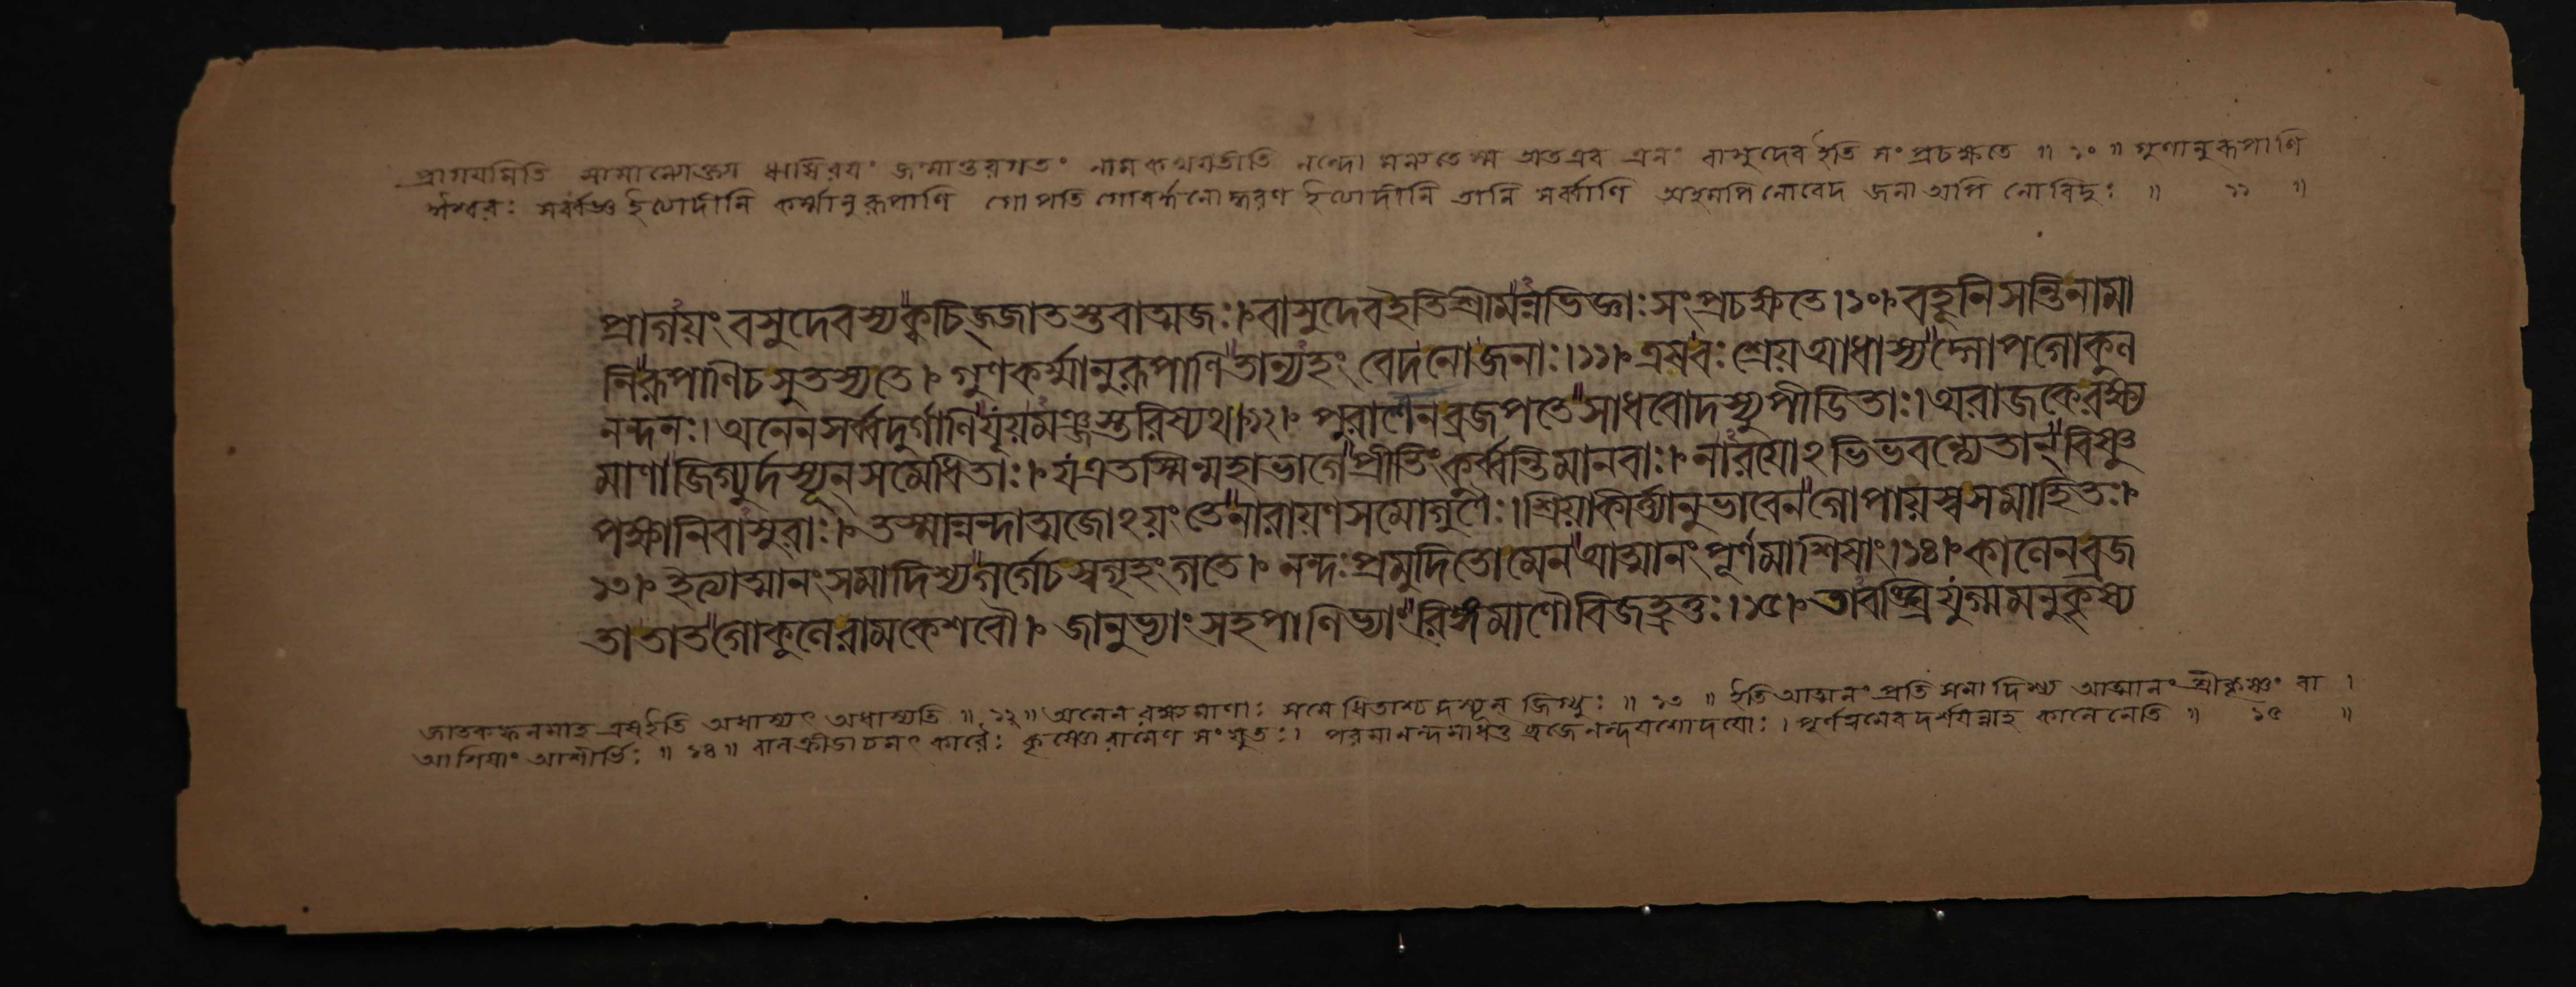 প্রাগযমিতি সামান্যোক্ত্যা ঋষিরয়ং জন্মান্তরগতং নাম কথযতীতি নন্দো মন্যতে স্ম অতএব এনং বাসুদেব ইতি সংপ্রচক্ষতে ॥ ১০ ॥ গুণানুরূপাণি
ঈশ্বরঃ সর্ব্বজ্ঞ ইত্যাদীনি কর্ম্মানুরূপাণি গোপতি গোবর্দ্ধনোদ্ধরণ ইত্যাদীনি তানি সর্ব্বাণি অহমপি নোবেদ জনা অপি নো বিদুঃ ॥ ১১ ॥
প্রাগয়ং বসুদেবস্য ক্বচিজ্জাতস্তবাত্মজঃ। বাসুদেব ইতি শ্রীমানভিজ্ঞাঃ সংপ্রচক্ষতে। ১০। বহূনি সন্তি নামা
নি রূপাণি চ সুতস্য তে। গুণকর্ম্মানুরূপাণি তান্যহং বেদ নো জনাঃ। ১১। এষ বঃ শ্রেয় আধাস্যদ্গোপগোকুল
নন্দনঃ। অনেন সর্ব্বদুর্গাণি যূয়মঞ্জস্তরিষ্যথ। ১২। পুরানেন ব্রজপতে সাধবো দস্যুপীডিতাঃ। অরাজকে রক্ষ্য
মাণা জিগ্যুর্দস্যূন্ সমেধিতাঃ। য এতস্মিন্মহাভাগে প্রীতিং কুর্ব্বন্তি মানবাঃ। নারয়োঽভিভবন্ত্যেতান্ বিষ্ণু
পক্ষানিবাসুরাঃ। তস্মান্নন্দাত্মজোঽয়ং তে নারায়ণসমো গুণৈঃ। শ্রিয়া কীর্ত্ত্যানুভাবেন গোপায়স্ব সমাহিতঃ।
১৩। ইত্যাত্মানং সমাদিশ্য গর্গে চ স্বগৃহং গতে। নন্দঃ প্রমুদিতো মেন আত্মানং পূর্ণমাশিষাং। ১৪। কালেন ব্রজ
তা তাত গোকুলে রামকেশবৌ। জানুভ্যাং সহ পাণিভ্যাং রিঙ্গমাণৌ বিজহ্রতুঃ। ১৫। তাবঙ্ঘ্রিযুগ্মমনুকৃষ্য
জাতকফলমাহ এষ ইতি অধাস্যৎ অধাস্যতি ॥ ১২ ॥ অনেন রক্ষ্যমাণাঃ সমেধিতাশ্চ দস্যূন্ জিগ্যুঃ ॥ ১৩ ॥ ইতি আত্মানং প্রতি সমাদিশ্য আত্মানং শ্রীকৃষ্ণং বা ।
আশিষাং আশীর্ভিঃ ॥ ১৪ ॥ বালক্রীডাচমৎকারৈঃ কৃষ্ণো রামেণ সংযুতঃ। পরমানন্দমাধত্ত ব্রজে নন্দযশোদযোঃ । পূর্ণত্বমেব দর্শযন্নাহ কালেনেতি ॥ ১৫ ॥